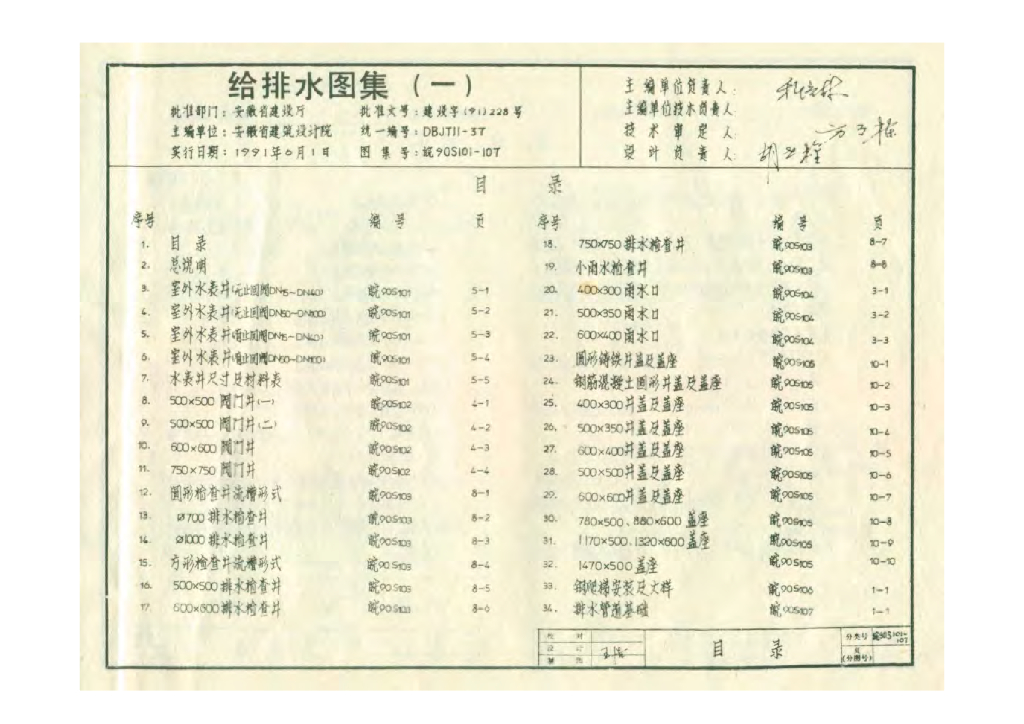 给排水图集（一）
批准部门：安徽省建设厅 批准文号：建设字(91)228号
主编单位：安徽省建筑设计院 统一编号：DBJT11-37
实行日期：1991年6月1日 图集号：皖90S101-107
主编单位负责人：
主编单位技术负责人：
技术审定人：
设计负责人：
目 录
序号 编号 页
1. 目录
2. 总说明
3. 室外水表井(无止回阀DN15~DN40) 皖90S101 5-1
4. 室外水表井(无止回阀DN50~DN100) 皖90S101 5-2
5. 室外水表井(有止回阀DN15~DN40) 皖90S101 5-3
6. 室外水表井(有止回阀DN50~DN100) 皖90S101 5-4
7. 水表井尺寸及材料表 皖90S101 5-5
8. 500×500 阀门井(一) 皖90S102 4-1
9. 500×500 阀门井(二) 皖90S102 4-2
10. 600×600 阀门井 皖90S102 4-3
11. 750×750 阀门井 皖90S102 4-4
12. 圆形检查井流槽形式 皖90S103 8-1
13. Ø700 排水检查井 皖90S103 8-2
14. Ø1000 排水检查井 皖90S103 8-3
15. 方形检查井流槽形式 皖90S103 8-4
16. 500×500 排水检查井 皖90S103 8-5
17. 600×600 排水检查井 皖90S103 8-6
序号 编号 页
18. 750×750 排水检查井 皖90S103 8-7
19. 小雨水检查井 皖90S103 8-8
20. 400×300 雨水口 皖90S104 3-1
21. 500×350 雨水口 皖90S104 3-2
22. 600×400 雨水口 皖90S104 3-3
23. 圆形铸铁井盖及盖座 皖90S105 10-1
24. 钢筋混凝土圆形井盖及盖座 皖90S105 10-2
25. 400×300 井盖及盖座 皖90S105 10-3
26. 500×350 井盖及盖座 皖90S105 10-4
27. 600×400 井盖及盖座 皖90S105 10-5
28. 500×500 井盖及盖座 皖90S105 10-6
29. 600×600 井盖及盖座 皖90S105 10-7
30. 780×500、880×600 盖座 皖90S105 10-8
31. 1170×500、1320×600 盖座 皖90S105 10-9
32. 1470×500 盖座 皖90S105 10-10
33. 钢爬梯安装及大样 皖90S106 1-1
34. 排水管道基础 皖90S107 1-1
校对
设计
制图
目 录
分类号 皖90S101-107
页(分图号)